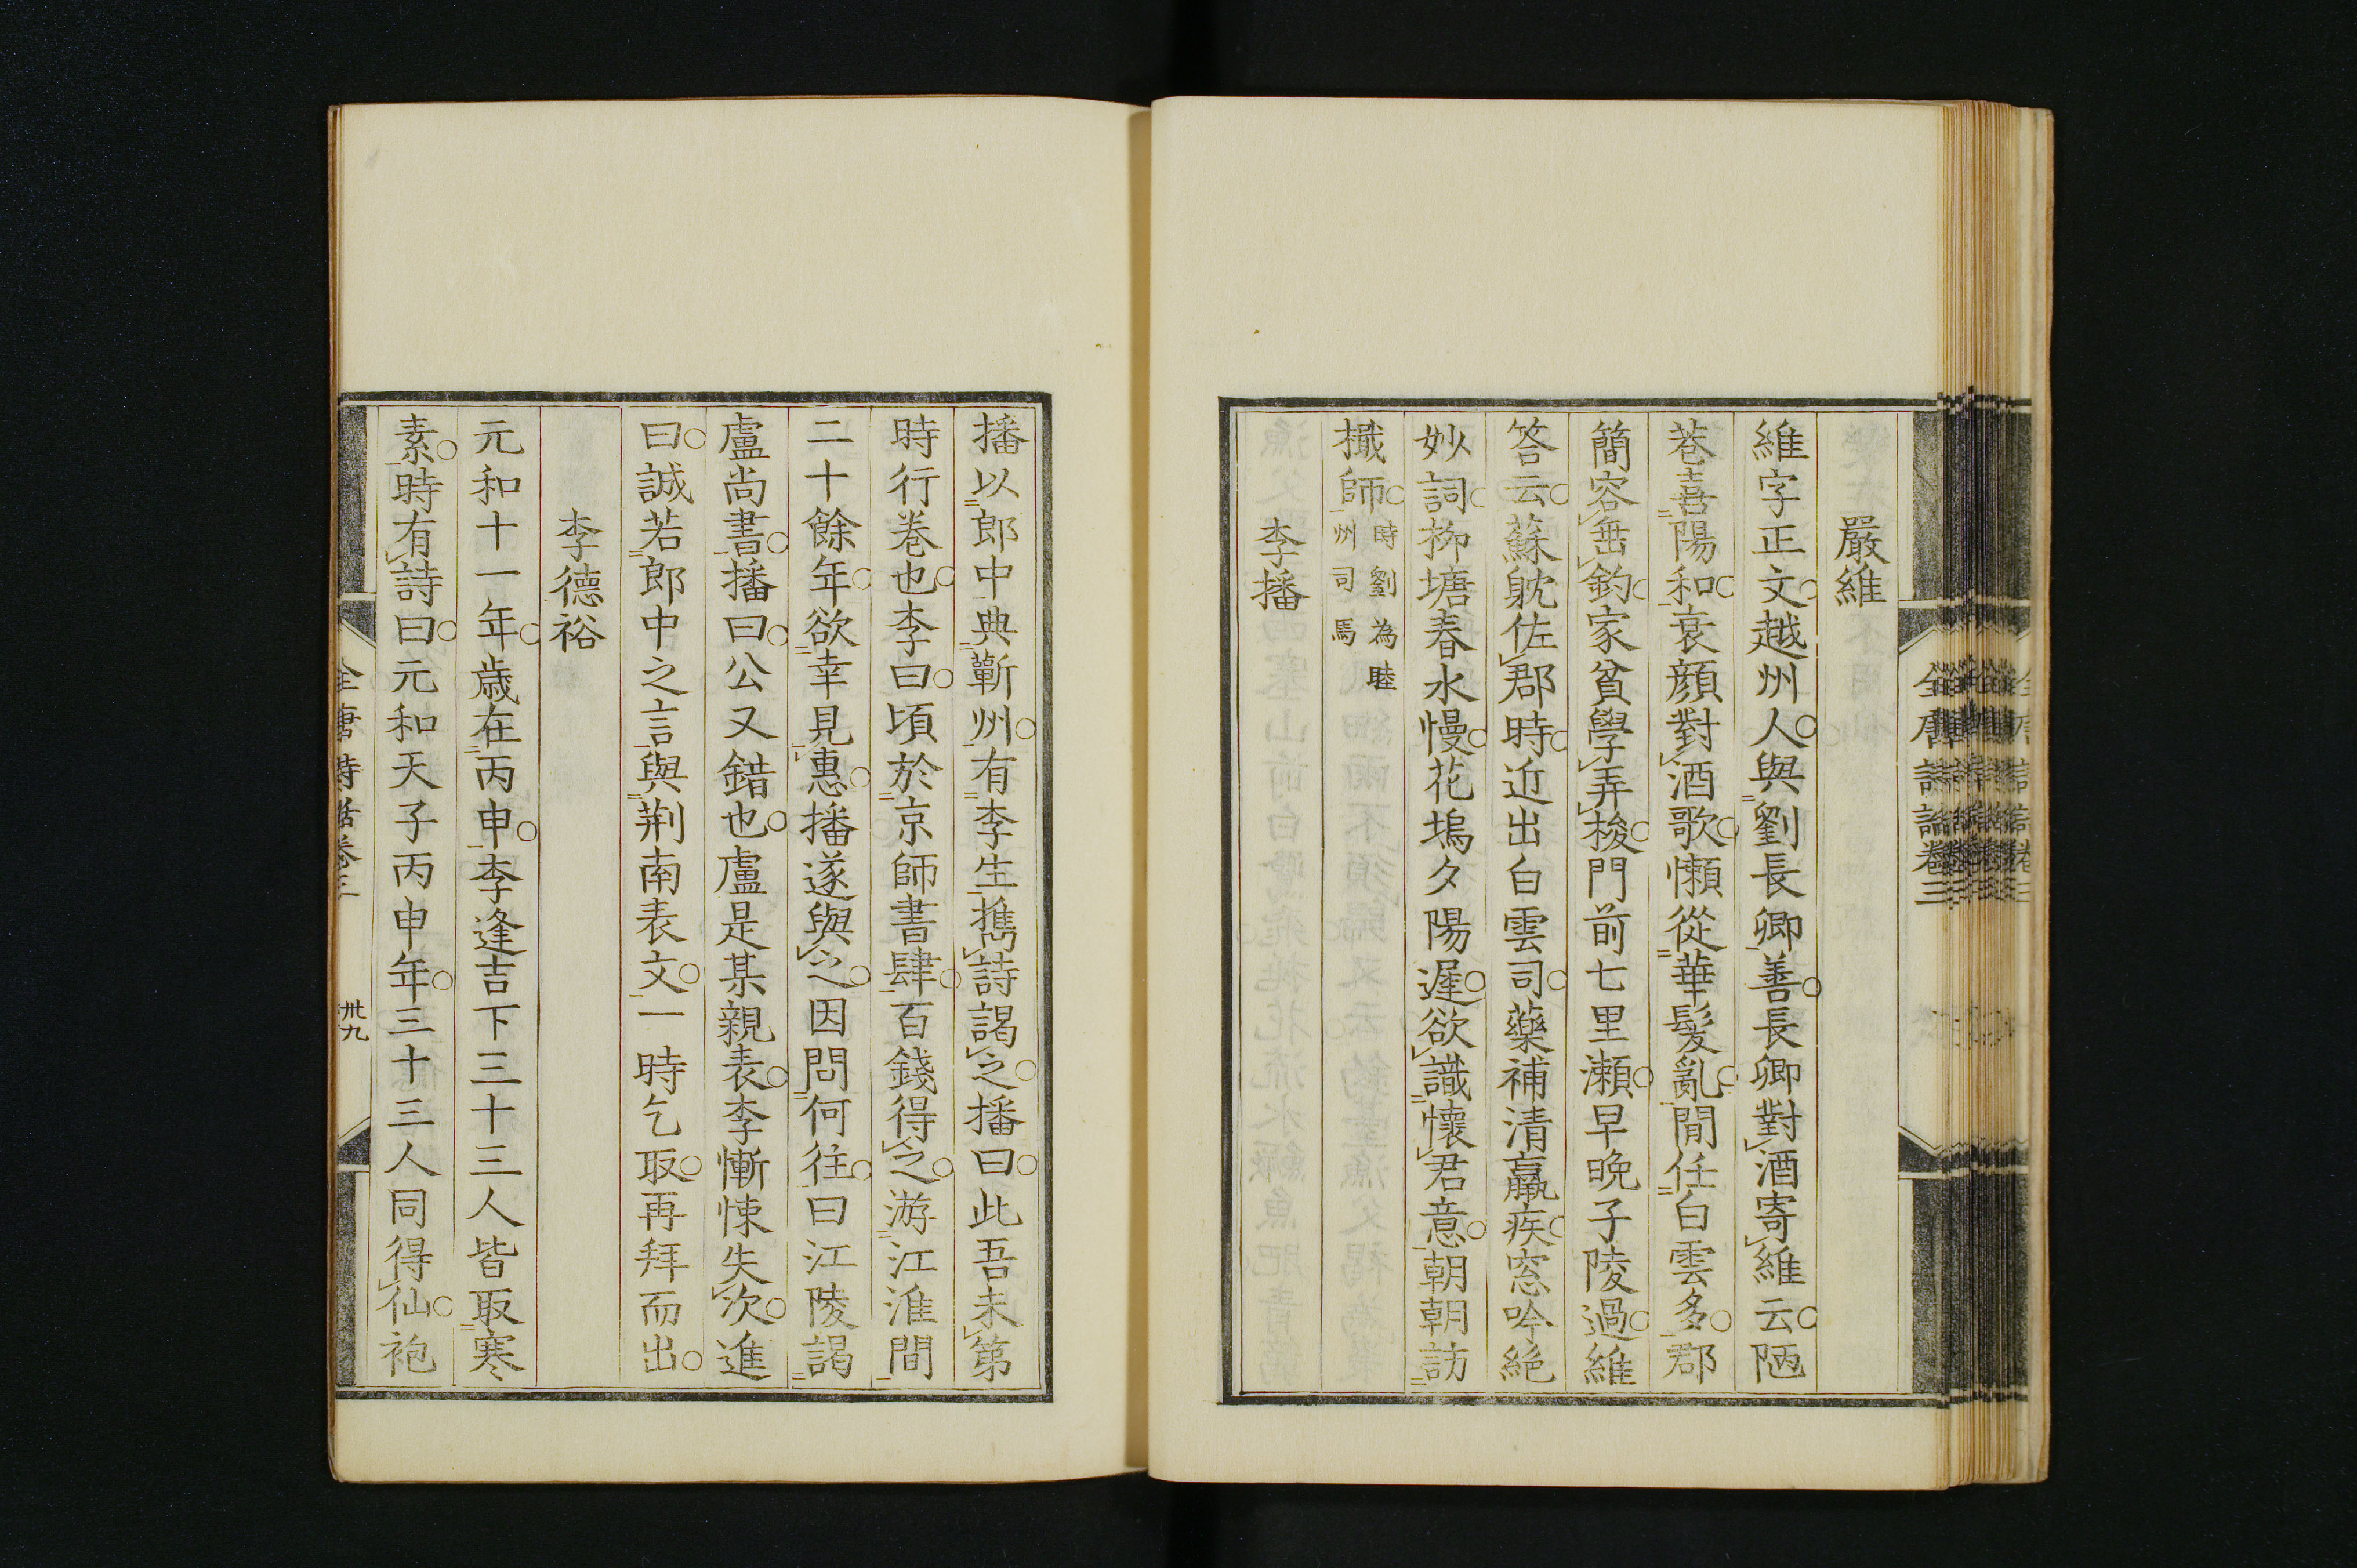 嚴維
維字正文越州人與劉長卿善長卿對酒寄維云陋
巷喜陽和衰顔對酒歌懶從華髮亂閒任白雲多郡
簡容垂釣家貧學弄梭門前七里瀬早晚子陵過維
答云蘇躭佐郡時近出白雲司藥補清羸疾窓吟絶
妙詞栁塘春水慢花塢夕陽遲欲識懷君意朝朝訪
檝師時劉為睦州司馬
李播
全唐詩話卷三
播以郎中典蘄州有李生擕詩謁之播曰此吾未第
時行巻也李曰頃於京師書肆百錢得之游江淮間
二十餘年欲幸見惠播遂與之因問何往曰江陵謁
盧尚書播曰公又錯也盧是某親表李慚悚失次進
曰誠若郎中之言與荆南表文一時乞取再拜而出
李德裕
元和十一年歳在丙申李逢吉下三十三人皆取寒
素時有詩曰元和天子丙申年三十三人同得仙袍
全唐詩話卷三
卅九